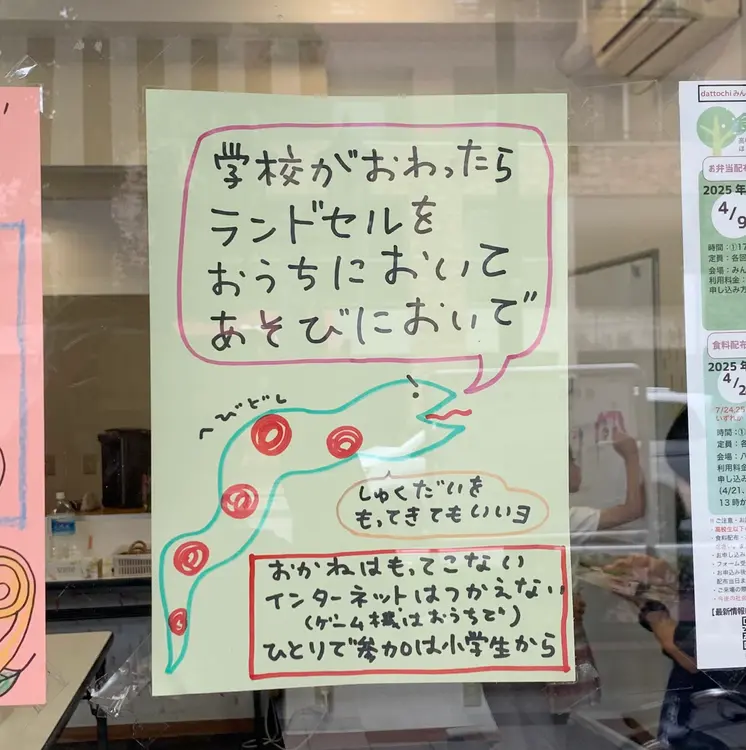 学校がおわったら
ランドセルを
おうちにおいて
あそびにおいで
へびどし
しゅくだいを
もってきてもいいヨ
おかねはもってこない
インターネットはつかえない
(ゲーム機はおうちで)
ひとりで参加は小学生から
dattochi みん
お弁当配布
2025 年
4/9
時間:①17
定員:各回
会場:みん
利用料金:
申し込み方
食料配布
2025 年
4/2
7/24,25
時間:①
定員:各
会場:八
利用料
申し込
(4/21.
13 時か
※ご注意・お
・高校生以下
・食料配布・
・お申し込み
・フォーム受
・お申込み後
配布当日ま
・ご来場の際
・今後内社
【最新情報